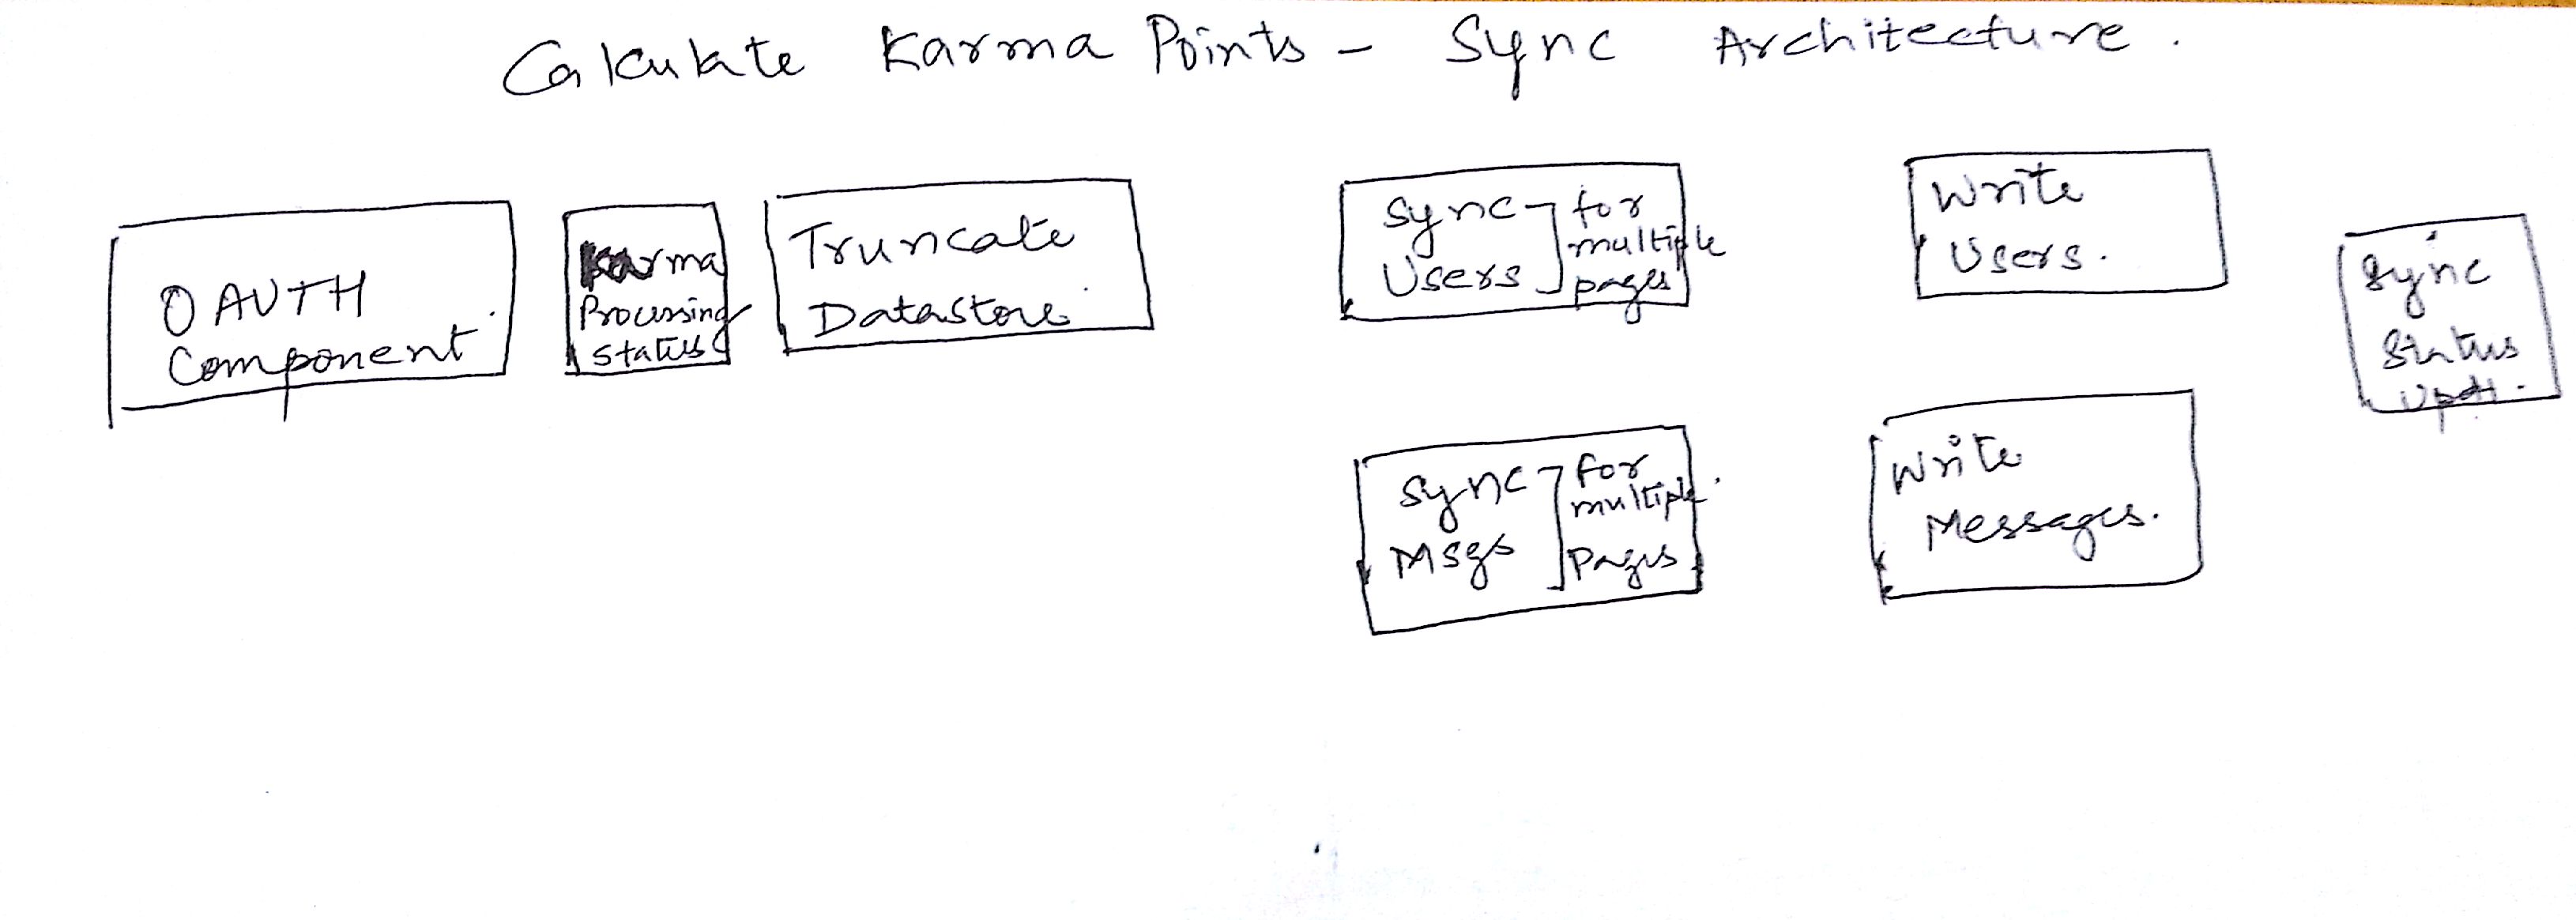 Calculate Karma Points - Sync Architecture.
OAUTH
Component.
Karma
Processing
Status
Truncate
Datastore.
Sync
Users
for
multiple
pages
Write
Users.
Sync
Status
Updt.
Sync
Msgs
for
multiple.
Pages
Write
Messages.